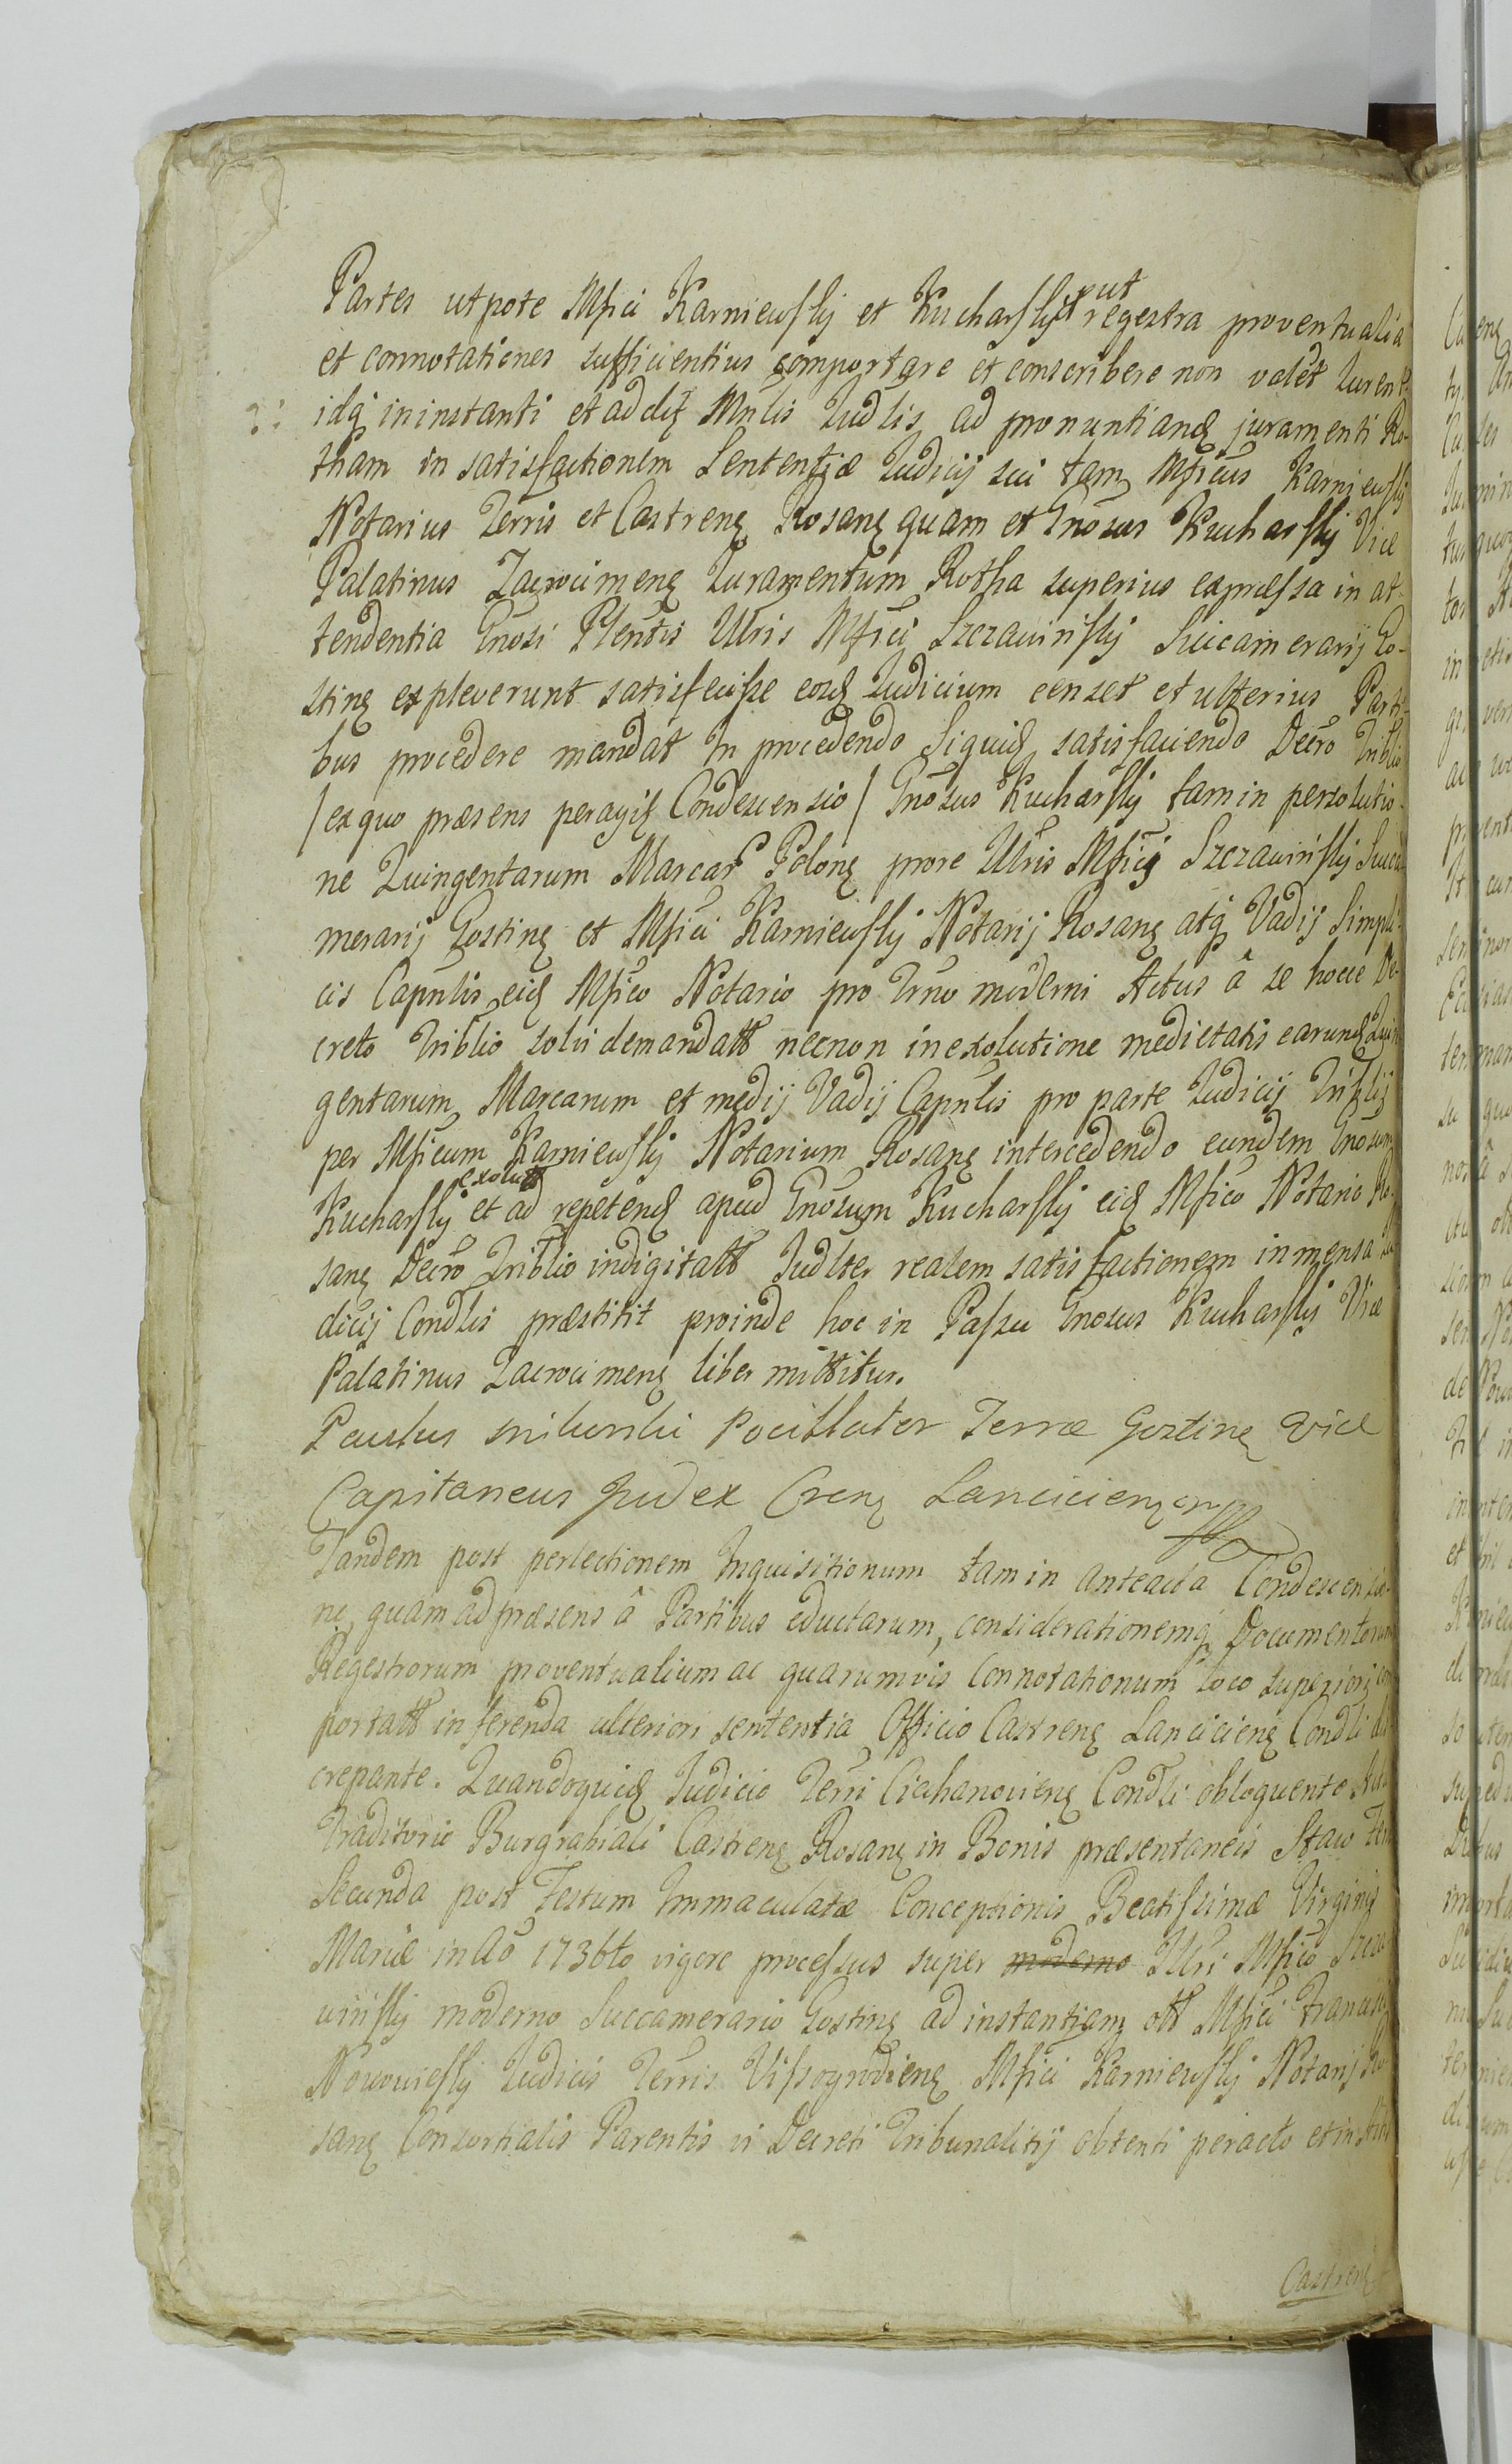 Partes utpote Mfici Karniewsky et Kucharsky put regestra proventualia
et connotationes sufficientius comportare et conscribere non valet Jurent
idq in instanti et ad Mnlis Judlis ad pronuntiand juramenti Ro-
tham in satisfactionem Sententiæ Judicij sui tam Mficus Karniewsky
Notarius Terris et Castren Rosan quam et Gnosus Kucharsky Vice
Palatinus Zacrocimen Juramentum Rotha superius expræssa in at-
tendentia Gnosi Plentis Ulris Mfici Szczawinsky Succamerarij Go-
stin expleverunt satisfecisse eosd Judicium censet et ulterius Parti-
bus procedere mandat In procedendo Siquid satisfaciendo Decro Triblio
/ ex quo præsens peragit Condescensio / Gnosus Kucharsky tam in persolutio-
ne Quingentarum Marcar Polon prore Ulris Mfici Szczawinsky Succa
merarij Gostin et Mfici Karniewsky Notarij Rosan atq Vadij Simpli-
cis Capnlis eid Mfico Notario pro Trno moderni Actus â se hocce De-
creto Triblio solvi demandatt necnon in exolutione medietatis earund Quin
gentarum Marcarum et medij Vadij Capnlis pro parte Judicij Triblij
per Mficum Karniewsky Notarium Rosan intercedendo eundem Gnosum
exolutt
Kucharsky et ad repetend apud Gnosum Kucharsky eid Mfico Notario Ro-
san Decro Triblio indigitatt Judlter realem satisfactionem in mensa Ju
dicij Condlis præstitit proinde hoc in Passu Gnosus Kucharsky Vice
Palatinus Zacrocimen liber mittitur.
Paulus Pocillator Terræ Gostinen Vice
Capitaneus Judex Cren Lancicien mp
Tandem post perlectionem Inquisitionum tam in anteacta Condescensio-
ne, quam ad præsens â Partibus eductarum, considerationemq Documentorum
Regestrorum proventualium ac quarumvis Connotationum loco superiori com
portatt in ferenda ulteriori sententia Officio Castren Lancicien Condli dis
crepante. Quandoquid Judicio Terri Ciechanovien Condli obloquente Actu
Traditorio Burgrabiali Castren Rosan in Bonis præsentaneis Staw Feria
Secunda post Festum Immaculatæ Conceptionis Beatissimæ Virginis
Mariæ in Ao 1736to vigore processus super moderno Ulri Mfico Szcza
winsky moderno Succamerario Gostin ad instantiam ott Mfici Francisci
Nowowiesky Judicis Terris Vissogrodien Mfici Karniewsky Notarij Ro
san Consortialis Parentis vi Decreti Tribunalitij obtenti peracto et in
Castren